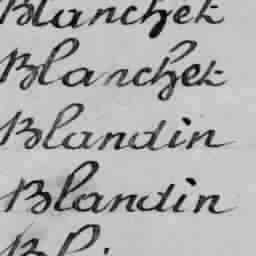 Blanchet
Blanchet
Blandin
Blandin